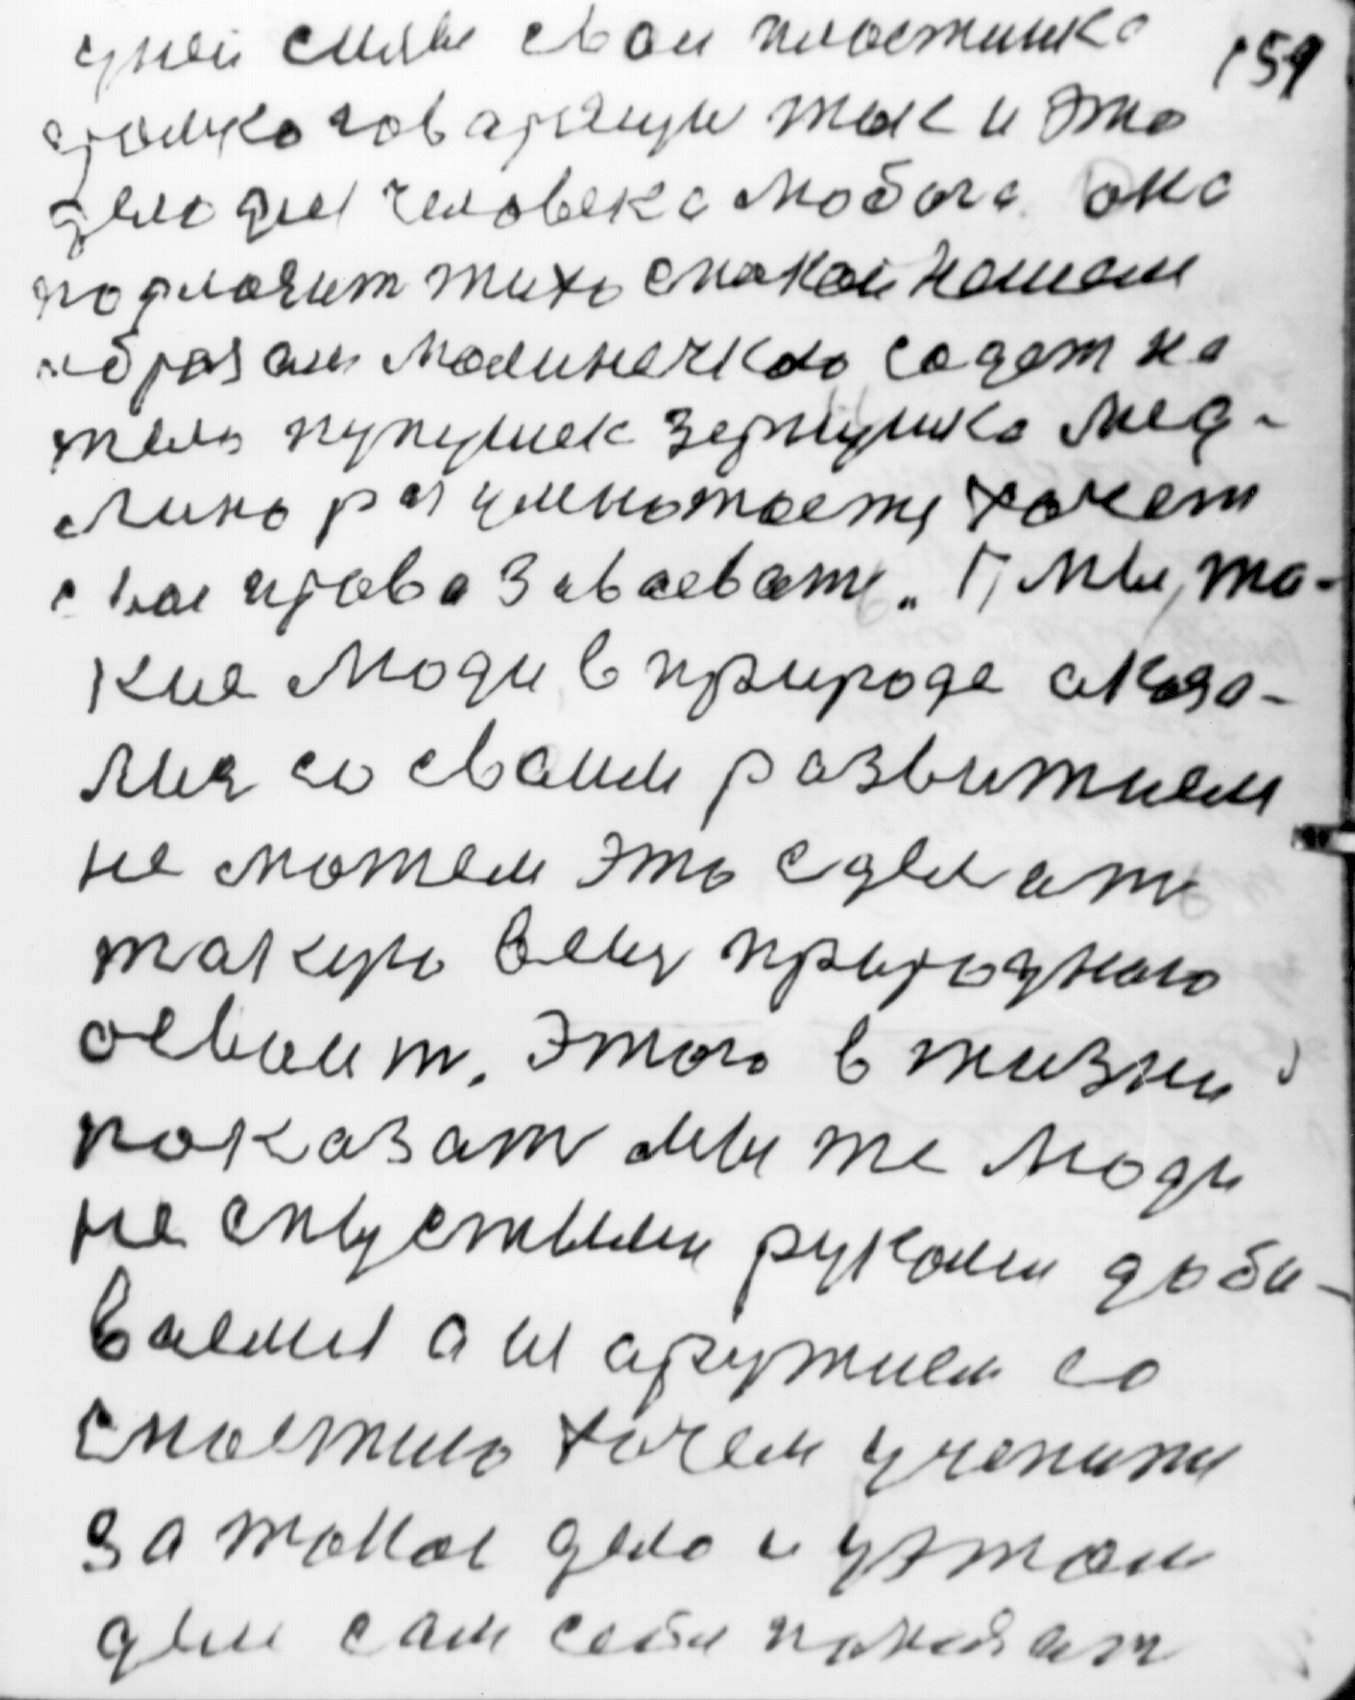 159
уней силы свои пластинка
громко говарящую так и это
дело для человека любога она
подложит тихо спакойнашом
образам малиначкаю садет на
тело пупушек зернушка мед-
лино размножаеть хочет
свои права завоевать. П, Мы, та-
кие люди, в природе акада-
мия со своим развитием
не можем это сделать
такую вещ природного
освоит. Этого в жизни
показат мы же люди
не спустыми руками доби-
ваемся а и аружием со
спостию хочем учепити
за такое дело и у этом
деле сам себя показат